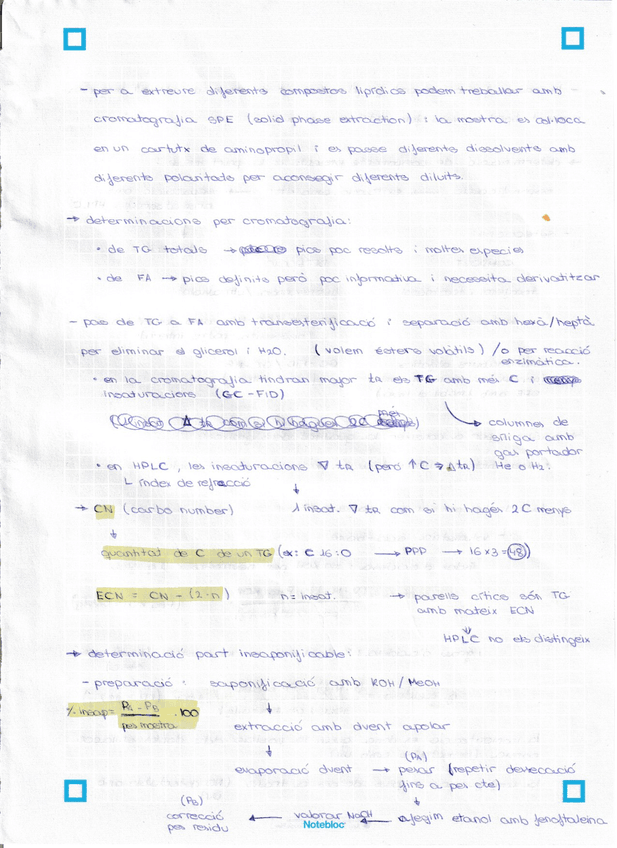 - per a extreure diferents compostos lipídics podem treballar amb
cromatografia SPE (solid phase extraction) : la mostra es col·loca
en un cartutx de aminopropil i es passe diferents dissolvents amb
diferents polaritats per aconsegir diferents diluits.
→ determinacions per cromatografia:
• de TG totals → pics poc resolts i moltes especies
• de FA → pics definits però poc informativa i necessita derivatitzar
- pas de TG a FA amb transesterificació i separació amb hexà/heptà
per eliminar el glicerol i H2O. (volem ésters volàtils) /o per reacció
enzimàtica.
• en la cromatografia tindran major tR els TG amb més C i
insaturacions (GC-FID)
→ columnes de
síliga amb
gas portador
He o H2.
• en HPLC, les insaturacions ▽ tR (però ↑C → △ tR)
L índex de refracció ↓
1 insat. ▽ tR com si hi hagés 2C menys
→ CN (carbo number)
↓
quantitat de C de un TG (ex: C 16:0 → PPP → 16 x 3 = 48)
ECN = CN - (2·n) n = insat. → parells crítics són TG
amb mateix ECN
⇓
HPLC no els distingeix
→ determinació part insaponificable:
- preparació : saponificació amb KOH/MeOH
↓
% insap = PA - PB / pes mostra · 100
extracció amb dvent apolar
↓
evaporació dvent → pesar (PA) (repetir dessecació
fins a pes cte)
↓
afegim etanol amb fenoftaleina
← valorar NaOH ←
(PB)
correcció
per residu
Notebloc